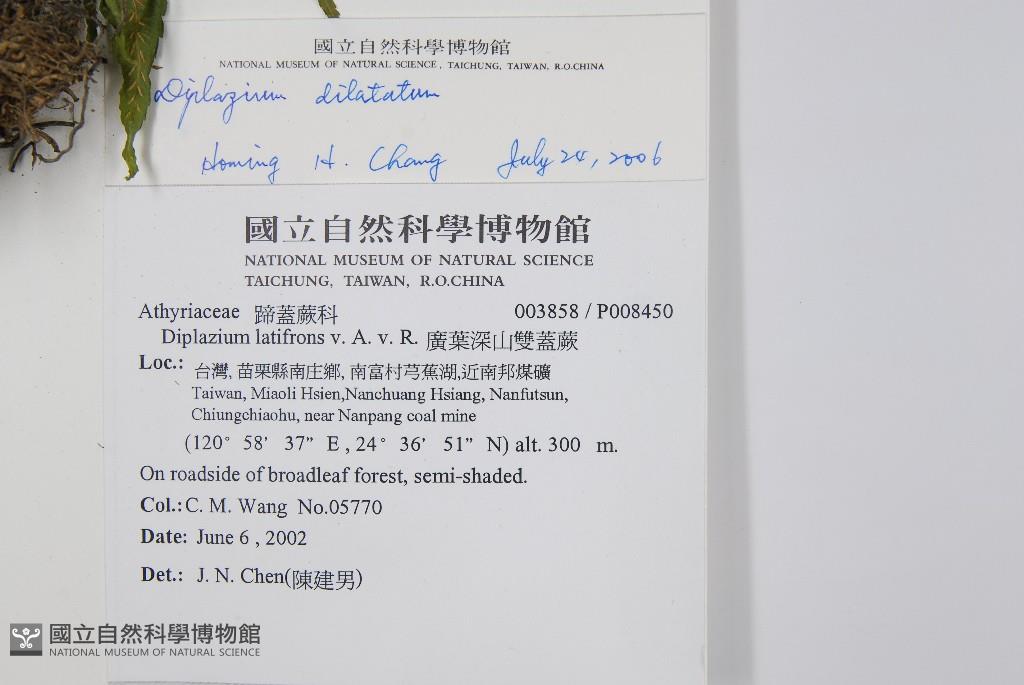 國立自然科學博物館
NATIONAL MUSEUM OF NATURAL SCIENCE, TAICHUNG, TAIWAN, R.O.CHINA
Diplazium dilatatum
Homing H. Chang July 24, 2006
國立自然科學博物館
NATIONAL MUSEUM OF NATURAL SCIENCE
TAICHUNG, TAIWAN, R.O.CHINA
Athyriaceae 蹄蓋蕨科 003858 / P008450
Diplazium latifrons v. A. v. R. 廣葉深山雙蓋蕨
Loc.: 台灣, 苗栗縣南庄鄉, 南富村芎蕉湖,近南邦煤礦
Taiwan, Miaoli Hsien,Nanchuang Hsiang, Nanfutsun,
Chiungchiaohu, near Nanpang coal mine
(120° 58' 37" E , 24° 36' 51" N) alt. 300 m.
On roadside of broadleaf forest, semi-shaded.
Col.: C. M. Wang No.05770
Date: June 6 , 2002
Det.: J. N. Chen(陳建男)
國立自然科學博物館
NATIONAL MUSEUM OF NATURAL SCIENCE